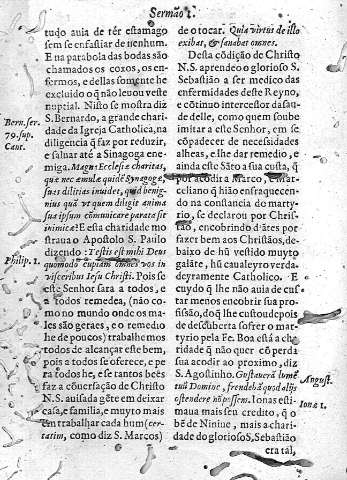 Sermão I.
tudo auia de ter estamago
sem se enfastiar de nenhum.
E na parabola das bodas são
chamados os coxos, os en-
fermos, e dellas somente he
excluido o q̃ não leuou veste
nuptial. Nisto se mostra diz
Bern. ser.
79. sup.
Cant.
S. Bernardo, a grande chari-
dade da Igreja Catholica, na
diligencia q̃ faz por reduzir,
e saluar até a Sinagoga ene-
miga. Magna Ecclesiæ charitas,
quæ nec æmulæ quidē Synagogæ,
suas dilitias inuidet, quid benig-
nius quã vt quem diligit anima
sua ipsum cōmunicare parata sit
inimicæ? Esta charidade mo-
straua o Apostolo S. Paulo
Philip. 1.
dizendo : Testis est mihi Deus
quomodo cupiam omnes vos in
visceribus Iesu Christi. Pois se
este Senhor sara a todos, e
a todos remedea, (não co-
mo no mundo onde os ma-
les são geraes, e o remedio
he de poucos) trabalhemos
todos de alcançar este bem,
pois a todos se oferece, e pe-
ra todos he, e se tantos beës
faz a cōuersação de Christo
N. S. ausada gēte em deixar
casa, e familia, e muyto mais
em trabalhar cada hum (cer-
tatim, como diz S. Marcos)
de o tocar. Quia virtus de illo
exibat, & sanabat omnes.
Desta cōdição de Christo
N. S. aprendeo o glorioso S.
Sebastião a ser medico das
enfermidades deste Reyno,
e cōtinuo intercessor da sau-
de delle, como quem soube
imitar a este Senhor, em se
cōpadecer de necessidades
alheas, e lhe dar remedio, e
ainda este Sāto a sua custa, q̃
por acodir a Marco, e Mar-
celiano q̃ hião enfraquecen-
do na constancia do marty-
rio, se declarou por Chris-
tão, encobrindo d'ātes por
fazer bem aos Christãos, de-
baixo de hũ vestido muyto
galāte, hũ caualeyro verda-
deyramente Catholico. E
cuydo q̃ lhe não auia de cus-
tar menos encobrir sua pro-
fissão, do q̃ lhe custou depois
de descuberta sofrer o mar-
tyrio pela Fe. Boa está a cha-
ridade q̃ não quer cō perda
sua acodir ao proximo, diz
August.
S. Agostinho. Gustauerā lumē
tuū Domine, frendebā quod alijs
ostendere nō possem. Ionas esti-
Ionæ 1.
maua mais seu credito, q̃ o
bē de Niniue, mais a chari-
dade do glorioso S, Sebastião
era tāl,